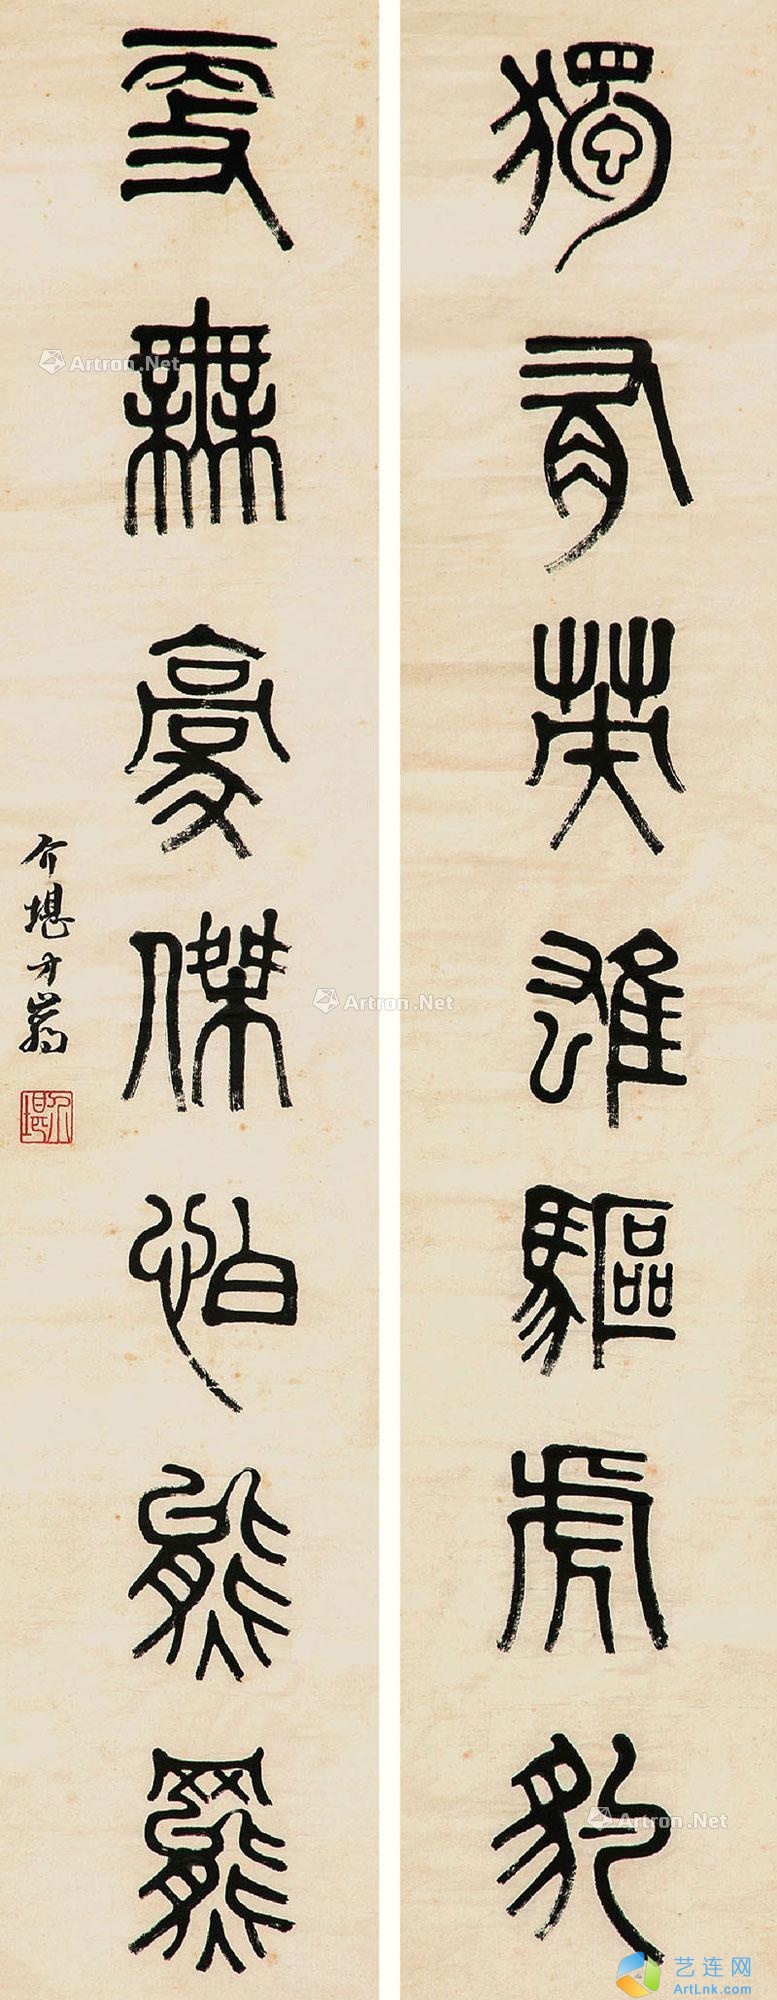 獨有英雄驅虎豹
更無豪傑怕熊羆
介堪方巖
介堪
Artron.Net
Artron.Net
Artron.Net
艺连网
ArtLnk.com